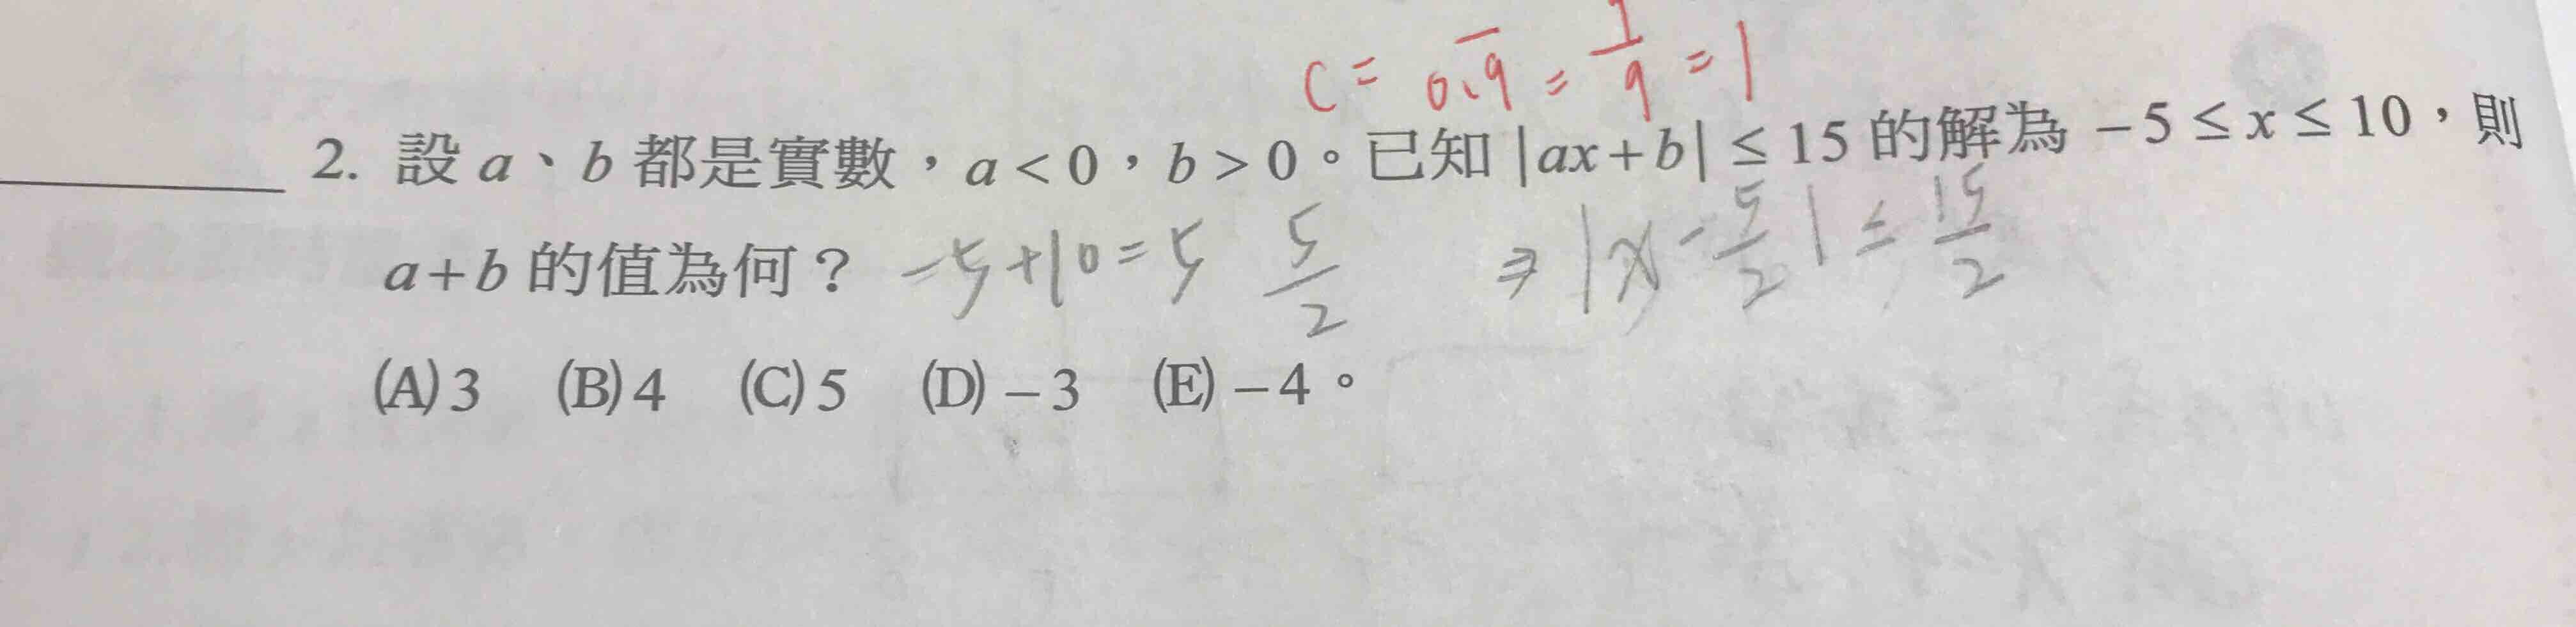 C = 0.9̅ = 1/9 = 1
2. 設 a、b 都是實數，a < 0，b > 0。已知 |ax+b| ≤ 15 的解為 −5 ≤ x ≤ 10，則
a+b 的值為何？ −5+10=5 5/2 ⇒ |x − 5/2| ≤ 15/2
(A) 3 (B) 4 (C) 5 (D) −3 (E) −4。